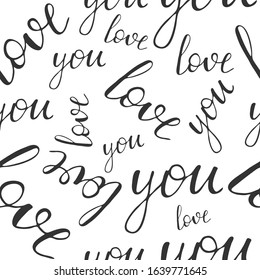 you
you
love
love
you
love
you
love
love
you
you
love
you
love
love
you
you
you
www.shutterstock.com · 1639771645